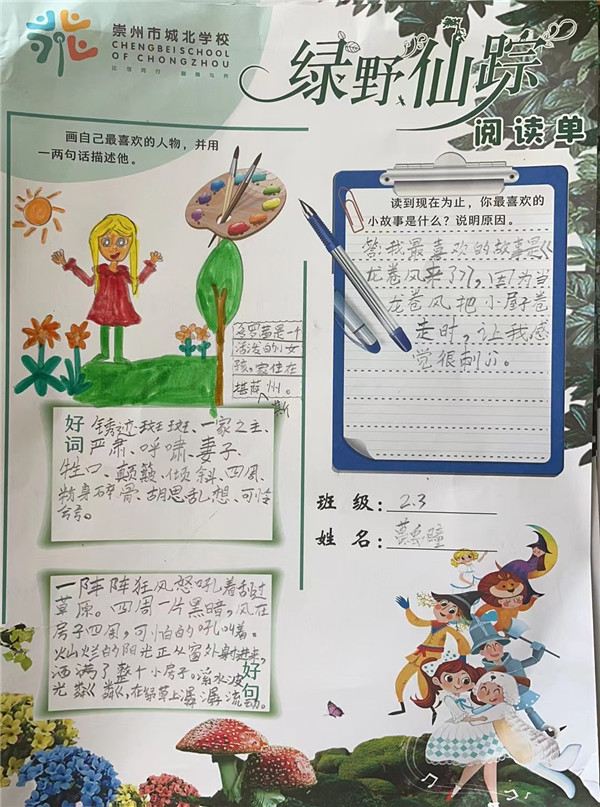 崇州市城北学校
CHENGBEI SCHOOL
OF CHONGZHOU
绿野仙踪
阅读单
画自己最喜欢的人物，并用
一两句话描述他。
多罗茜是一个
活泼的小女
孩，家住在
堪萨斯州。
读到现在为止，你最喜欢的
小故事是什么？说明原因。
答：我最喜欢的故事是《
龙卷风来了》，因为当
龙卷风把小屋子卷
走时，让我感
觉很刺
好词
锈迹斑斑、一家之主、
严肃、呼啸、妻子、
牲口、颠簸、倾斜、四周、
粉身碎骨、胡思乱想、可怜
兮兮。
班级：2.3
姓名：
一阵阵狂风怒吼着刮过
草原。四周一片黑暗，风在
房子四周，可怕的吼叫着。
火山烂的阳光正从窗外射进来，
洒满了整个小房子。溪水波
光粼粼，在绿草上潺潺流动。
好句